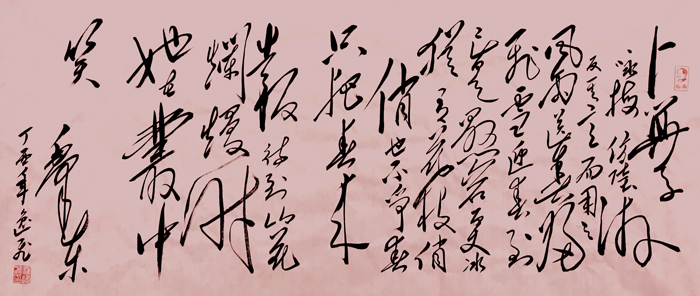 卜算子
咏梅 仿陆游
反其意而用之
风雨送春归
飞雪迎春到
已是悬崖百丈冰
犹有花枝俏
俏也不争春
只把春来
报 待到山花
烂漫时
她在丛中
笑
毛泽东
丁酉年